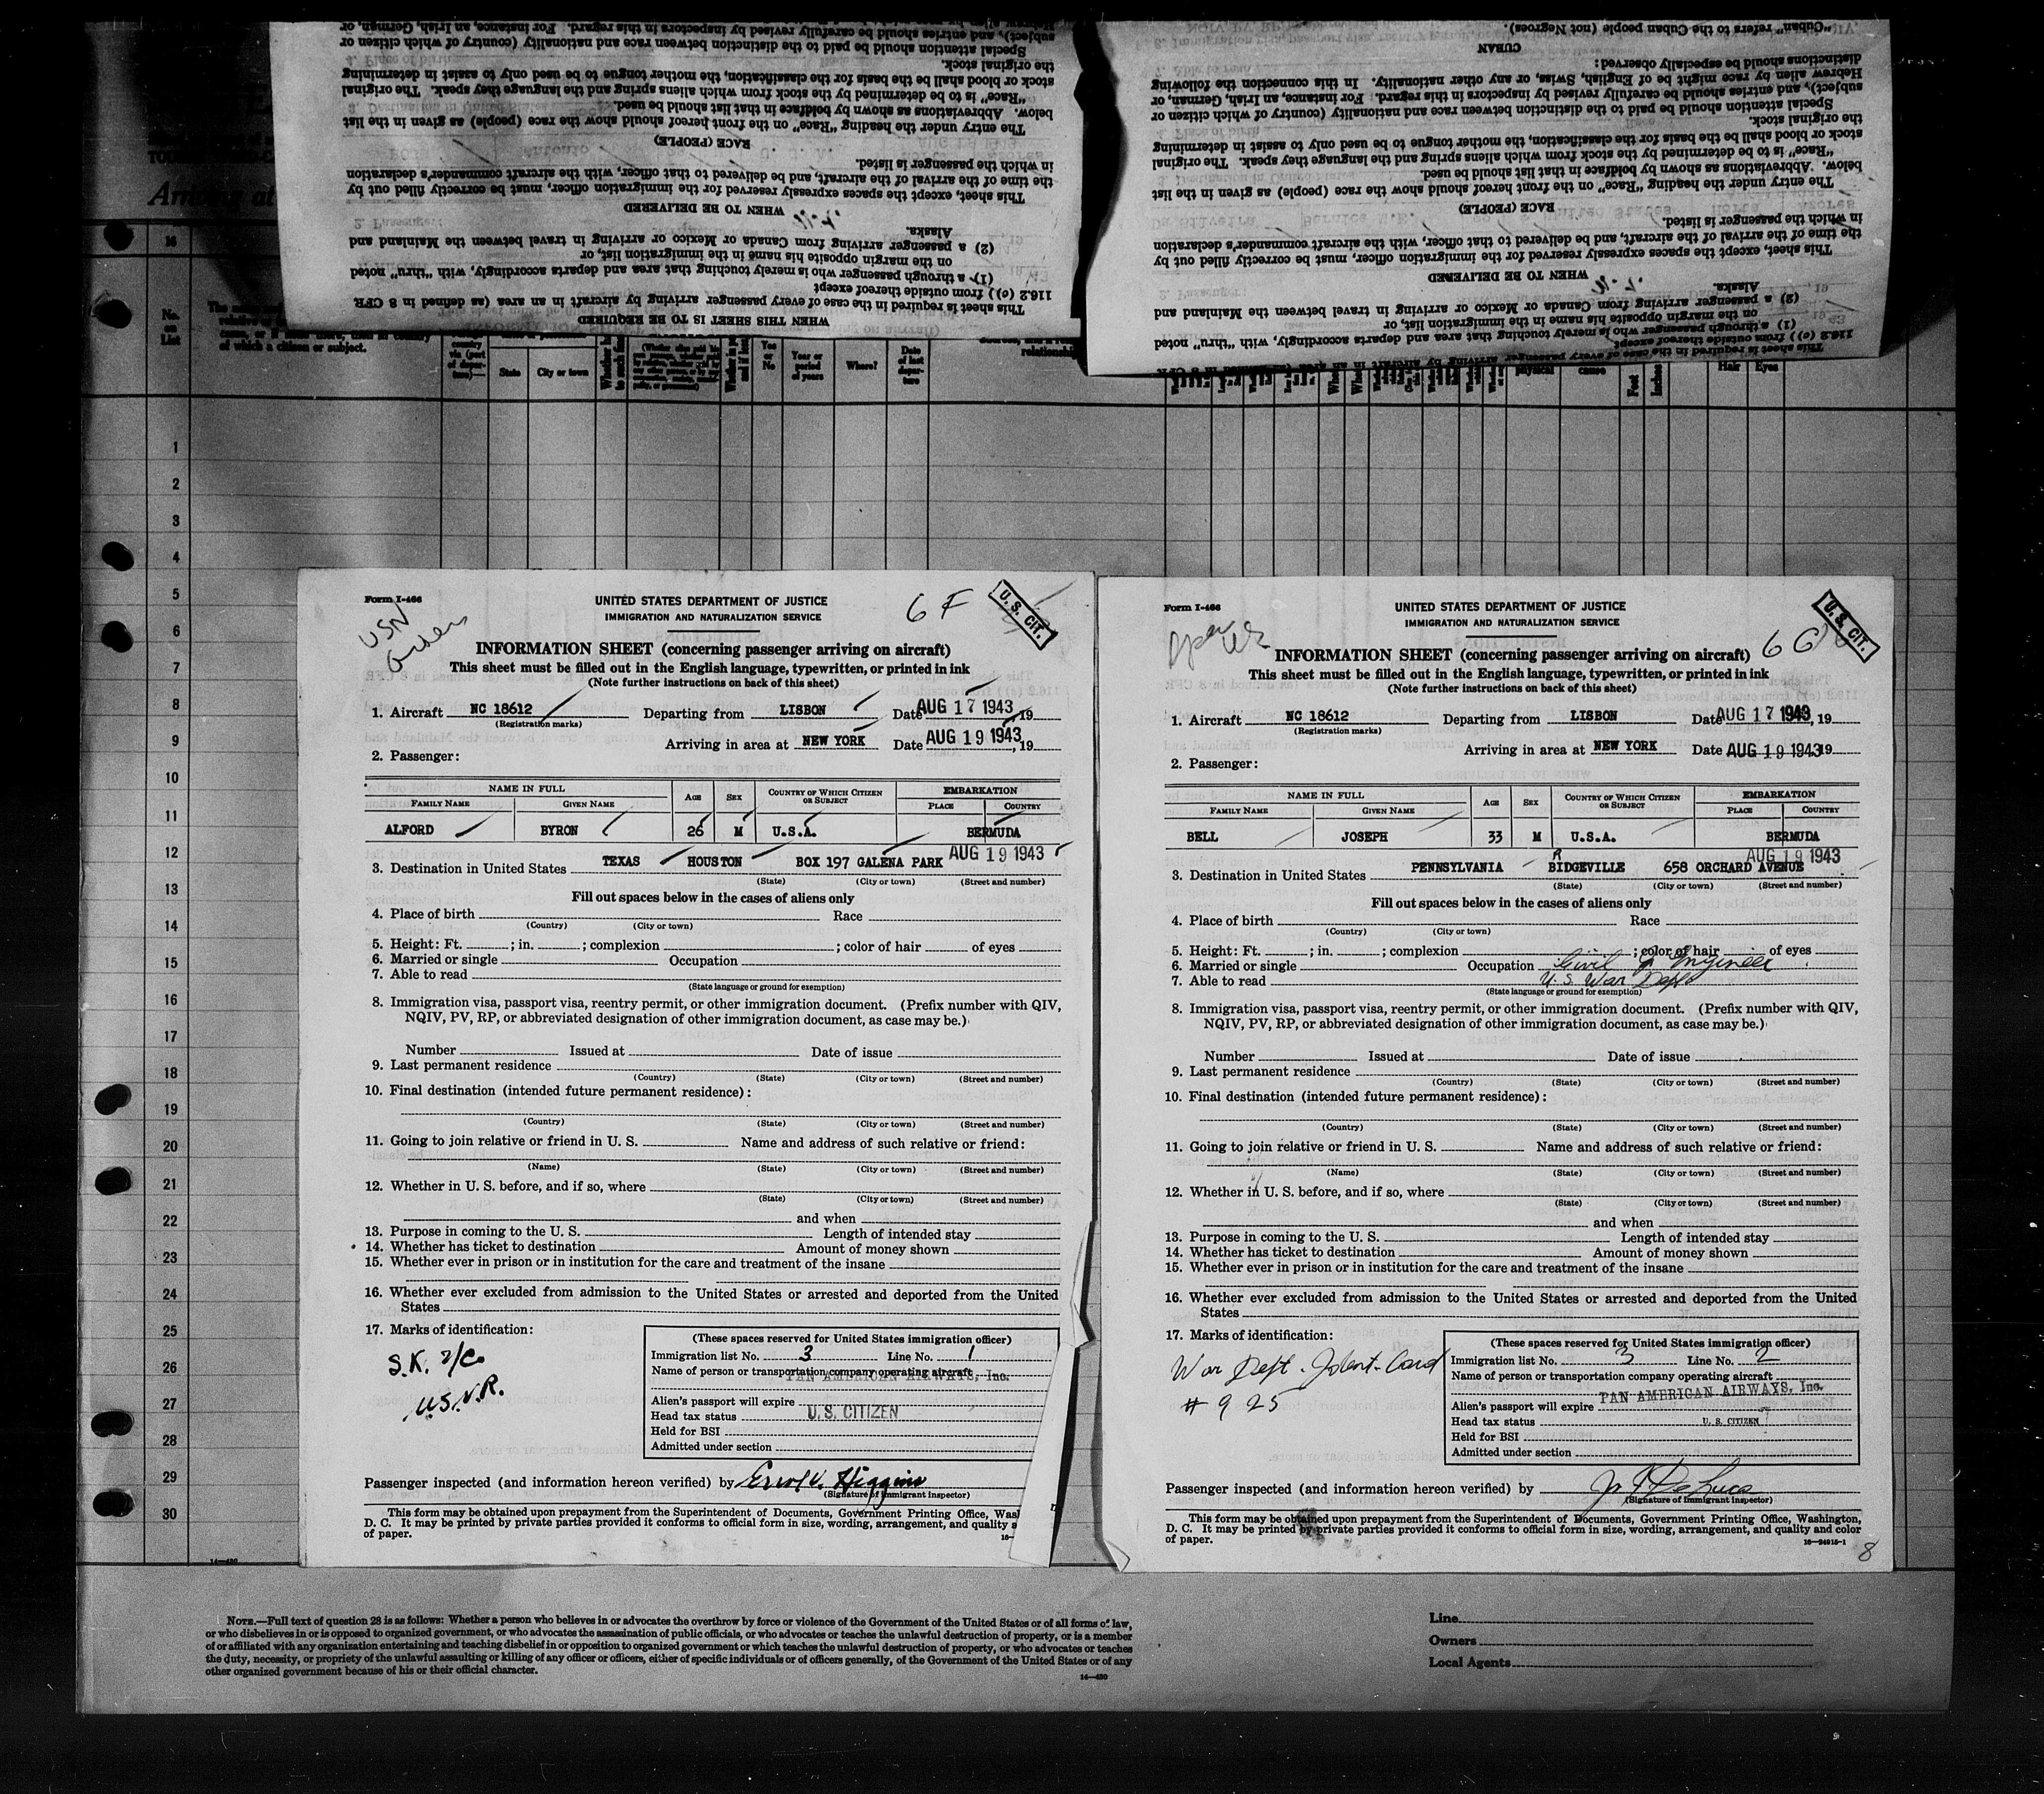 No. on List
country via (port of depar- ture)
State
City or town
Yes or No
Year or period of years
Where?
Date of last depar- ture
Feet
Inches
Hair
Eyes
This sheet is required in the case of every passenger arriving by aircraft in an area (as defined in 8 CFR
116.2 (c)) from outside thereof except
(1) a through passenger who is merely touching that area and departs accordingly, with "thru" noted
on the margin opposite his name in the immigration list, or
(2) a passenger arriving from Canada or Mexico or arriving in travel between the Mainland and
Alaska.
WHEN TO BE DELIVERED
This sheet, except the spaces expressly reserved for the immigration officer, must be correctly filled out by
the time of the arrival of the aircraft, and be delivered to that officer, with the aircraft commander's declaration
in which the passenger is listed.
RACE (PEOPLE)
The entry under the heading "Race" on the front hereof should show the race (people) as given in the list
below. Abbreviations as shown by boldface in that list should be used.
"Race" is to be determined by the stock from which aliens spring and the language they speak. The original
stock or blood shall be the basis for the classification, the mother tongue to be used only to assist in determining
the original stock.
Special attention should be paid to the distinction between race and nationality (country of which citizen or
subject), and entries should be carefully revised by inspectors in this regard. For instance, an Irish, German, or
WHEN THIS SHEET IS TO BE REQUIRED
This sheet is required in the case of every passenger arriving by aircraft in an area (as defined in 8 CFR
116.2 (c)) from outside thereof except
(1) a through passenger who is merely touching that area and departs accordingly, with "thru" noted
on the margin opposite his name in the immigration list, or
(2) a passenger arriving from Canada or Mexico or arriving in travel between the Mainland and
Alaska.
WHEN TO BE DELIVERED
This sheet, except the spaces expressly reserved for the immigration officer, must be correctly filled out by
the time of the arrival of the aircraft, and be delivered to that officer, with the aircraft commander's declaration
in which the passenger is listed.
RACE (PEOPLE)
The entry under the heading "Race" on the front hereof should show the race (people) as given in the list
below. Abbreviations as shown by boldface in that list should be used.
"Race" is to be determined by the stock from which aliens spring and the language they speak. The original
stock or blood shall be the basis for the classification, the mother tongue to be used only to assist in determining
the original stock.
Special attention should be paid to the distinction between race and nationality (country of which citizen or
subject), and entries should be carefully revised by inspectors in this regard. For instance, an Irish, German, or
Hebrew alien by race might be of English, Swiss, or any other nationality. In this connection the following
distinctions should be especially observed:
CUBAN
"Cuban" refers to the Cuban people (not Negroes).
1
2
3
4
5
6
7
8
9
10
11
12
13
14
15
16
17
18
19
20
21
22
23
24
25
26
27
28
29
30
Form I-466
USN
6 F
U. S. CIT.
UNITED STATES DEPARTMENT OF JUSTICE
IMMIGRATION AND NATURALIZATION SERVICE
INFORMATION SHEET (concerning passenger arriving on aircraft)
This sheet must be filled out in the English language, typewritten, or printed in ink
(Note further instructions on back of this sheet)
1. Aircraft NC 18612 Departing from LISBON Date AUG 17 1943, 19
(Registration marks)
Arriving in area at NEW YORK Date AUG 19 1943, 19
2. Passenger:
NAME IN FULL AGE SEX COUNTRY OF WHICH CITIZEN OR SUBJECT EMBARKATION
FAMILY NAME GIVEN NAME PLACE COUNTRY
ALFORD BYRON 26 M U.S.A. BERMUDA
AUG 19 1943
3. Destination in United States TEXAS HOUSTON BOX 197 GALENA PARK
(State) (City or town) (Street and number)
Fill out spaces below in the cases of aliens only
4. Place of birth Race
(Country) (City or town)
5. Height: Ft. ; in. ; complexion ; color of hair of eyes
6. Married or single Occupation
7. Able to read
(State language or ground for exemption)
8. Immigration visa, passport visa, reentry permit, or other immigration document. (Prefix number with QIV,
NQIV, PV, RP, or abbreviated designation of other immigration document, as case may be.)
Number Issued at Date of issue
9. Last permanent residence
(Country) (State) (City or town) (Street and number)
10. Final destination (intended future permanent residence):
(Country) (State) (City or town) (Street and number)
11. Going to join relative or friend in U. S. Name and address of such relative or friend:
(Name) (State) (City or town) (Street and number)
12. Whether in U. S. before, and if so, where
(State) (City or town) (Street and number)
and when
13. Purpose in coming to the U. S. Length of intended stay
14. Whether has ticket to destination Amount of money shown
15. Whether ever in prison or in institution for the care and treatment of the insane
16. Whether ever excluded from admission to the United States or arrested and deported from the United
States
17. Marks of identification:
S.K. 2/C
U.S.N.R.
(These spaces reserved for United States immigration officer)
Immigration list No. 3 Line No. 1
Name of person or transportation company operating aircraft
PAN AMERICAN AIRWAYS, Inc.
Alien's passport will expire
Head tax status U. S. CITIZEN
Held for BSI
Admitted under section
Passenger inspected (and information hereon verified) by Errol V. Higgins
(Signature of immigrant inspector)
This form may be obtained upon prepayment from the Superintendent of Documents, Government Printing Office, Was
D. C. It may be printed by private parties provided it conforms to official form in size, wording, arrangement, and quality a
of paper.
16-
Form I-466
6 G
U. S. CIT.
UNITED STATES DEPARTMENT OF JUSTICE
IMMIGRATION AND NATURALIZATION SERVICE
INFORMATION SHEET (concerning passenger arriving on aircraft)
This sheet must be filled out in the English language, typewritten, or printed in ink
(Note further instructions on back of this sheet)
1. Aircraft NC 18612 Departing from LISBON Date AUG 17 1943, 19
(Registration marks)
Arriving in area at NEW YORK Date AUG 19 1943 19
2. Passenger:
NAME IN FULL AGE SEX COUNTRY OF WHICH CITIZEN OR SUBJECT EMBARKATION
FAMILY NAME GIVEN NAME PLACE COUNTRY
BELL JOSEPH 33 M U.S.A. BERMUDA
AUG 19 1943
3. Destination in United States PENNSYLVANIA BRIDGEVILLE 658 ORCHARD AVENUE
(State) (City or town) (Street and number)
Fill out spaces below in the cases of aliens only
4. Place of birth Race
(Country) (City or town)
5. Height: Ft. ; in. ; complexion ; color of hair of eyes
6. Married or single Occupation Civil Engineer
7. Able to read U. S. War Dept
(State language or ground for exemption)
8. Immigration visa, passport visa, reentry permit, or other immigration document. (Prefix number with QIV,
NQIV, PV, RP, or abbreviated designation of other immigration document, as case may be.)
Number Issued at Date of issue
9. Last permanent residence
(Country) (State) (City or town) (Street and number)
10. Final destination (intended future permanent residence):
(Country) (State) (City or town) (Street and number)
11. Going to join relative or friend in U. S. Name and address of such relative or friend:
(Name) (State) (City or town) (Street and number)
12. Whether in U. S. before, and if so, where
(State) (City or town) (Street and number)
and when
13. Purpose in coming to the U. S. Length of intended stay
14. Whether has ticket to destination Amount of money shown
15. Whether ever in prison or in institution for the care and treatment of the insane
16. Whether ever excluded from admission to the United States or arrested and deported from the United
States
17. Marks of identification:
War Dept. Ident. Card
# 925
(These spaces reserved for United States immigration officer)
Immigration list No. 3 Line No. 2
Name of person or transportation company operating aircraft
PAN AMERICAN AIRWAYS, Inc.
Alien's passport will expire
Head tax status U. S. CITIZEN
Held for BSI
Admitted under section
Passenger inspected (and information hereon verified) by
(Signature of immigrant inspector)
This form may be obtained upon prepayment from the Superintendent of Documents, Government Printing Office, Washington,
D. C. It may be printed by private parties provided it conforms to official form in size, wording, arrangement, and quality and color
of paper.
16—24915-1
8
14—430
NOTE.—Full text of question 28 is as follows: Whether a person who believes in or advocates the overthrow by force or violence of the Government of the United States or of all forms of law,
or who disbelieves in or is opposed to organized government, or who advocates the assassination of public officials, or who advocates or teaches the unlawful destruction of property, or is a member
of or affiliated with any organization entertaining and teaching disbelief in or opposition to organized government or which teaches the unlawful destruction of property, or who advocates or teaches
the duty, necessity, or propriety of the unlawful assaulting or killing of any officer or officers, either of specific individuals or of officers generally, of the Government of the United States or of any
other organized government because of his or their official character.
14—430
Line
Owners
Local Agents